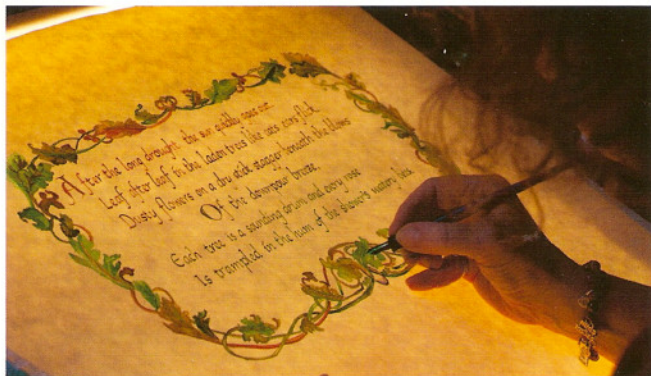 After the long drought the sun quickly goes out.
Leaf after leaf in the laden trees like cats' ears flick
Dusty flowers on a dry stick stagger beneath the blows
Of the downpour breeze,
Each tree is a sounding drum and every rose
Is trampled in the hum of the shower's watery lies.